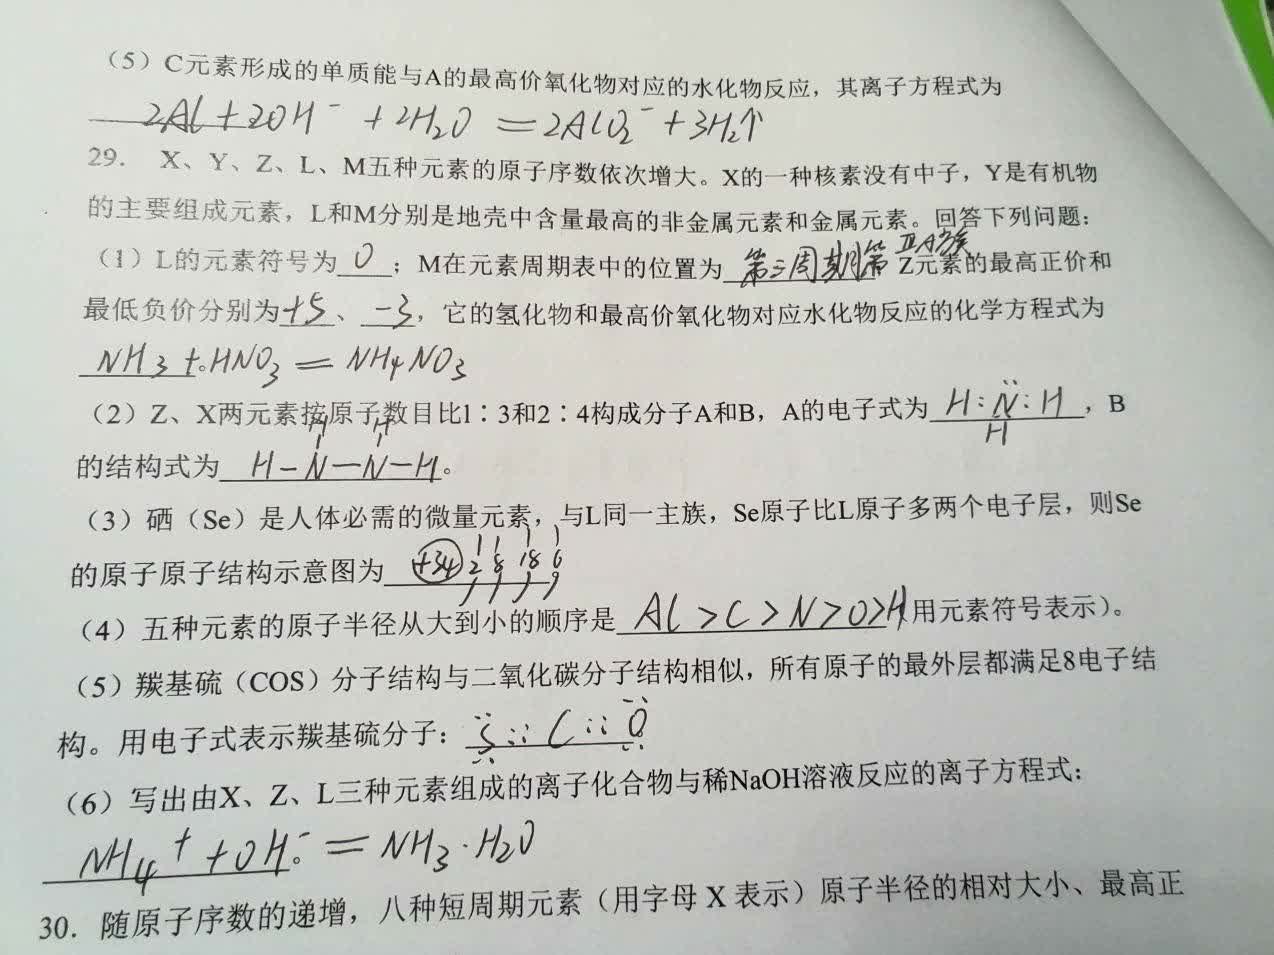 （5）C元素形成的单质能与A的最高价氧化物对应的水化物反应，其离子方程式为
2Al+2OH⁻+2H₂O=2AlO₂⁻+3H₂↑
29. X、Y、Z、L、M五种元素的原子序数依次增大。X的一种核素没有中子，Y是有机物
的主要组成元素，L和M分别是地壳中含量最高的非金属元素和金属元素。回答下列问题：
（1）L的元素符号为 O ；M在元素周期表中的位置为 第三周期第ⅢA族 Z元素的最高正价和
最低负价分别为+5、-3，它的氢化物和最高价氧化物对应水化物反应的化学方程式为
NH₃+HNO₃=NH₄NO₃
（2）Z、X两元素按原子数目比1∶3和2∶4构成分子A和B，A的电子式为 H:N̈:H ，B
H
H H
的结构式为 H-N-N-H 。
（3）硒（Se）是人体必需的微量元素，与L同一主族，Se原子比L原子多两个电子层，则Se
的原子原子结构示意图为 +34 2 8 18 6
（4）五种元素的原子半径从大到小的顺序是 Al>C>N>O>H 用元素符号表示）。
（5）羰基硫（COS）分子结构与二氧化碳分子结构相似，所有原子的最外层都满足8电子结
构。用电子式表示羰基硫分子：S::C::O
（6）写出由X、Z、L三种元素组成的离子化合物与稀NaOH溶液反应的离子方程式：
NH₄⁺+OH⁻=NH₃·H₂O
30. 随原子序数的递增，八种短周期元素（用字母 X 表示）原子半径的相对大小、最高正